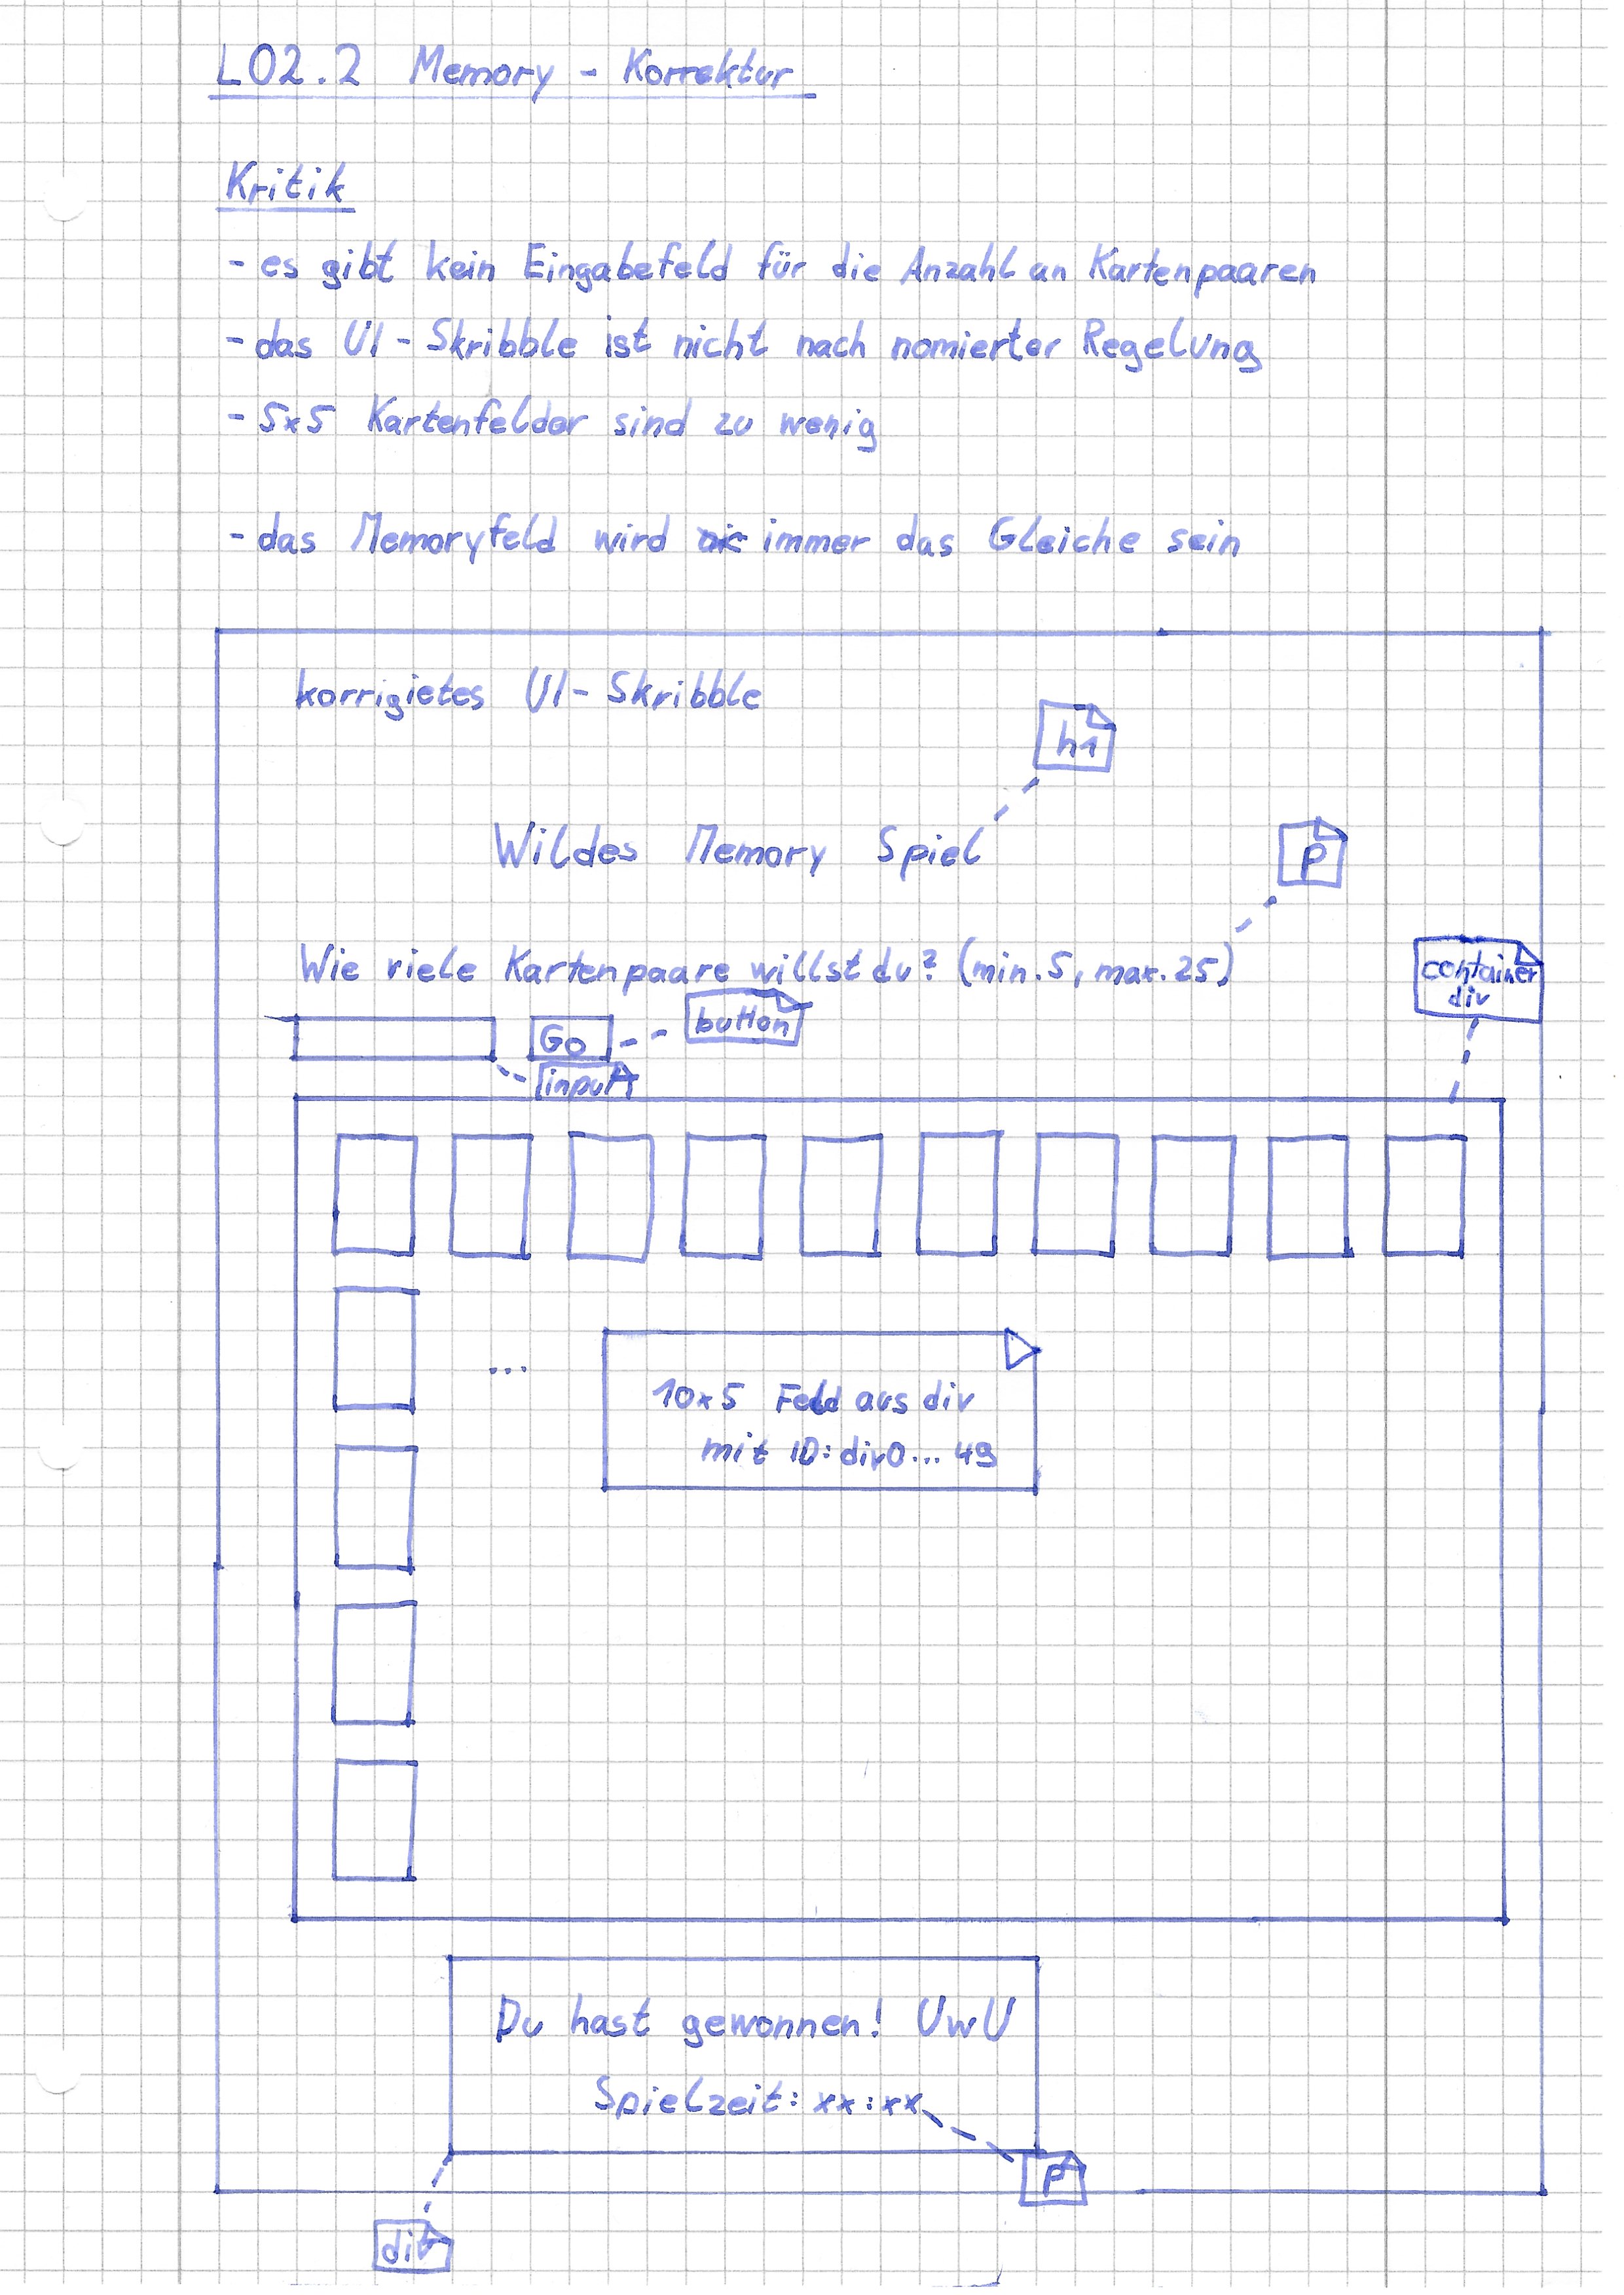 L02.2 Memory - Korrektur
Kritik
- es gibt kein Eingabefeld für die Anzahl an Kartenpaaren
- das UI-Skribble ist nicht nach nomierter Regelung
- 5x5 Kartenfelder sind zu wenig
- das Memoryfeld wird immer das Gleiche sein
korrigietes UI-Skribble
h1
Wildes Memory Spiel
p
Wie viele Kartenpaare willst du? (min. 5, max. 25)
container
div
Go
button
input
10x5 Feld aus div
mit ID: div0... 49
Du hast gewonnen! UwU
Spielzeit: xx:xx
p
div